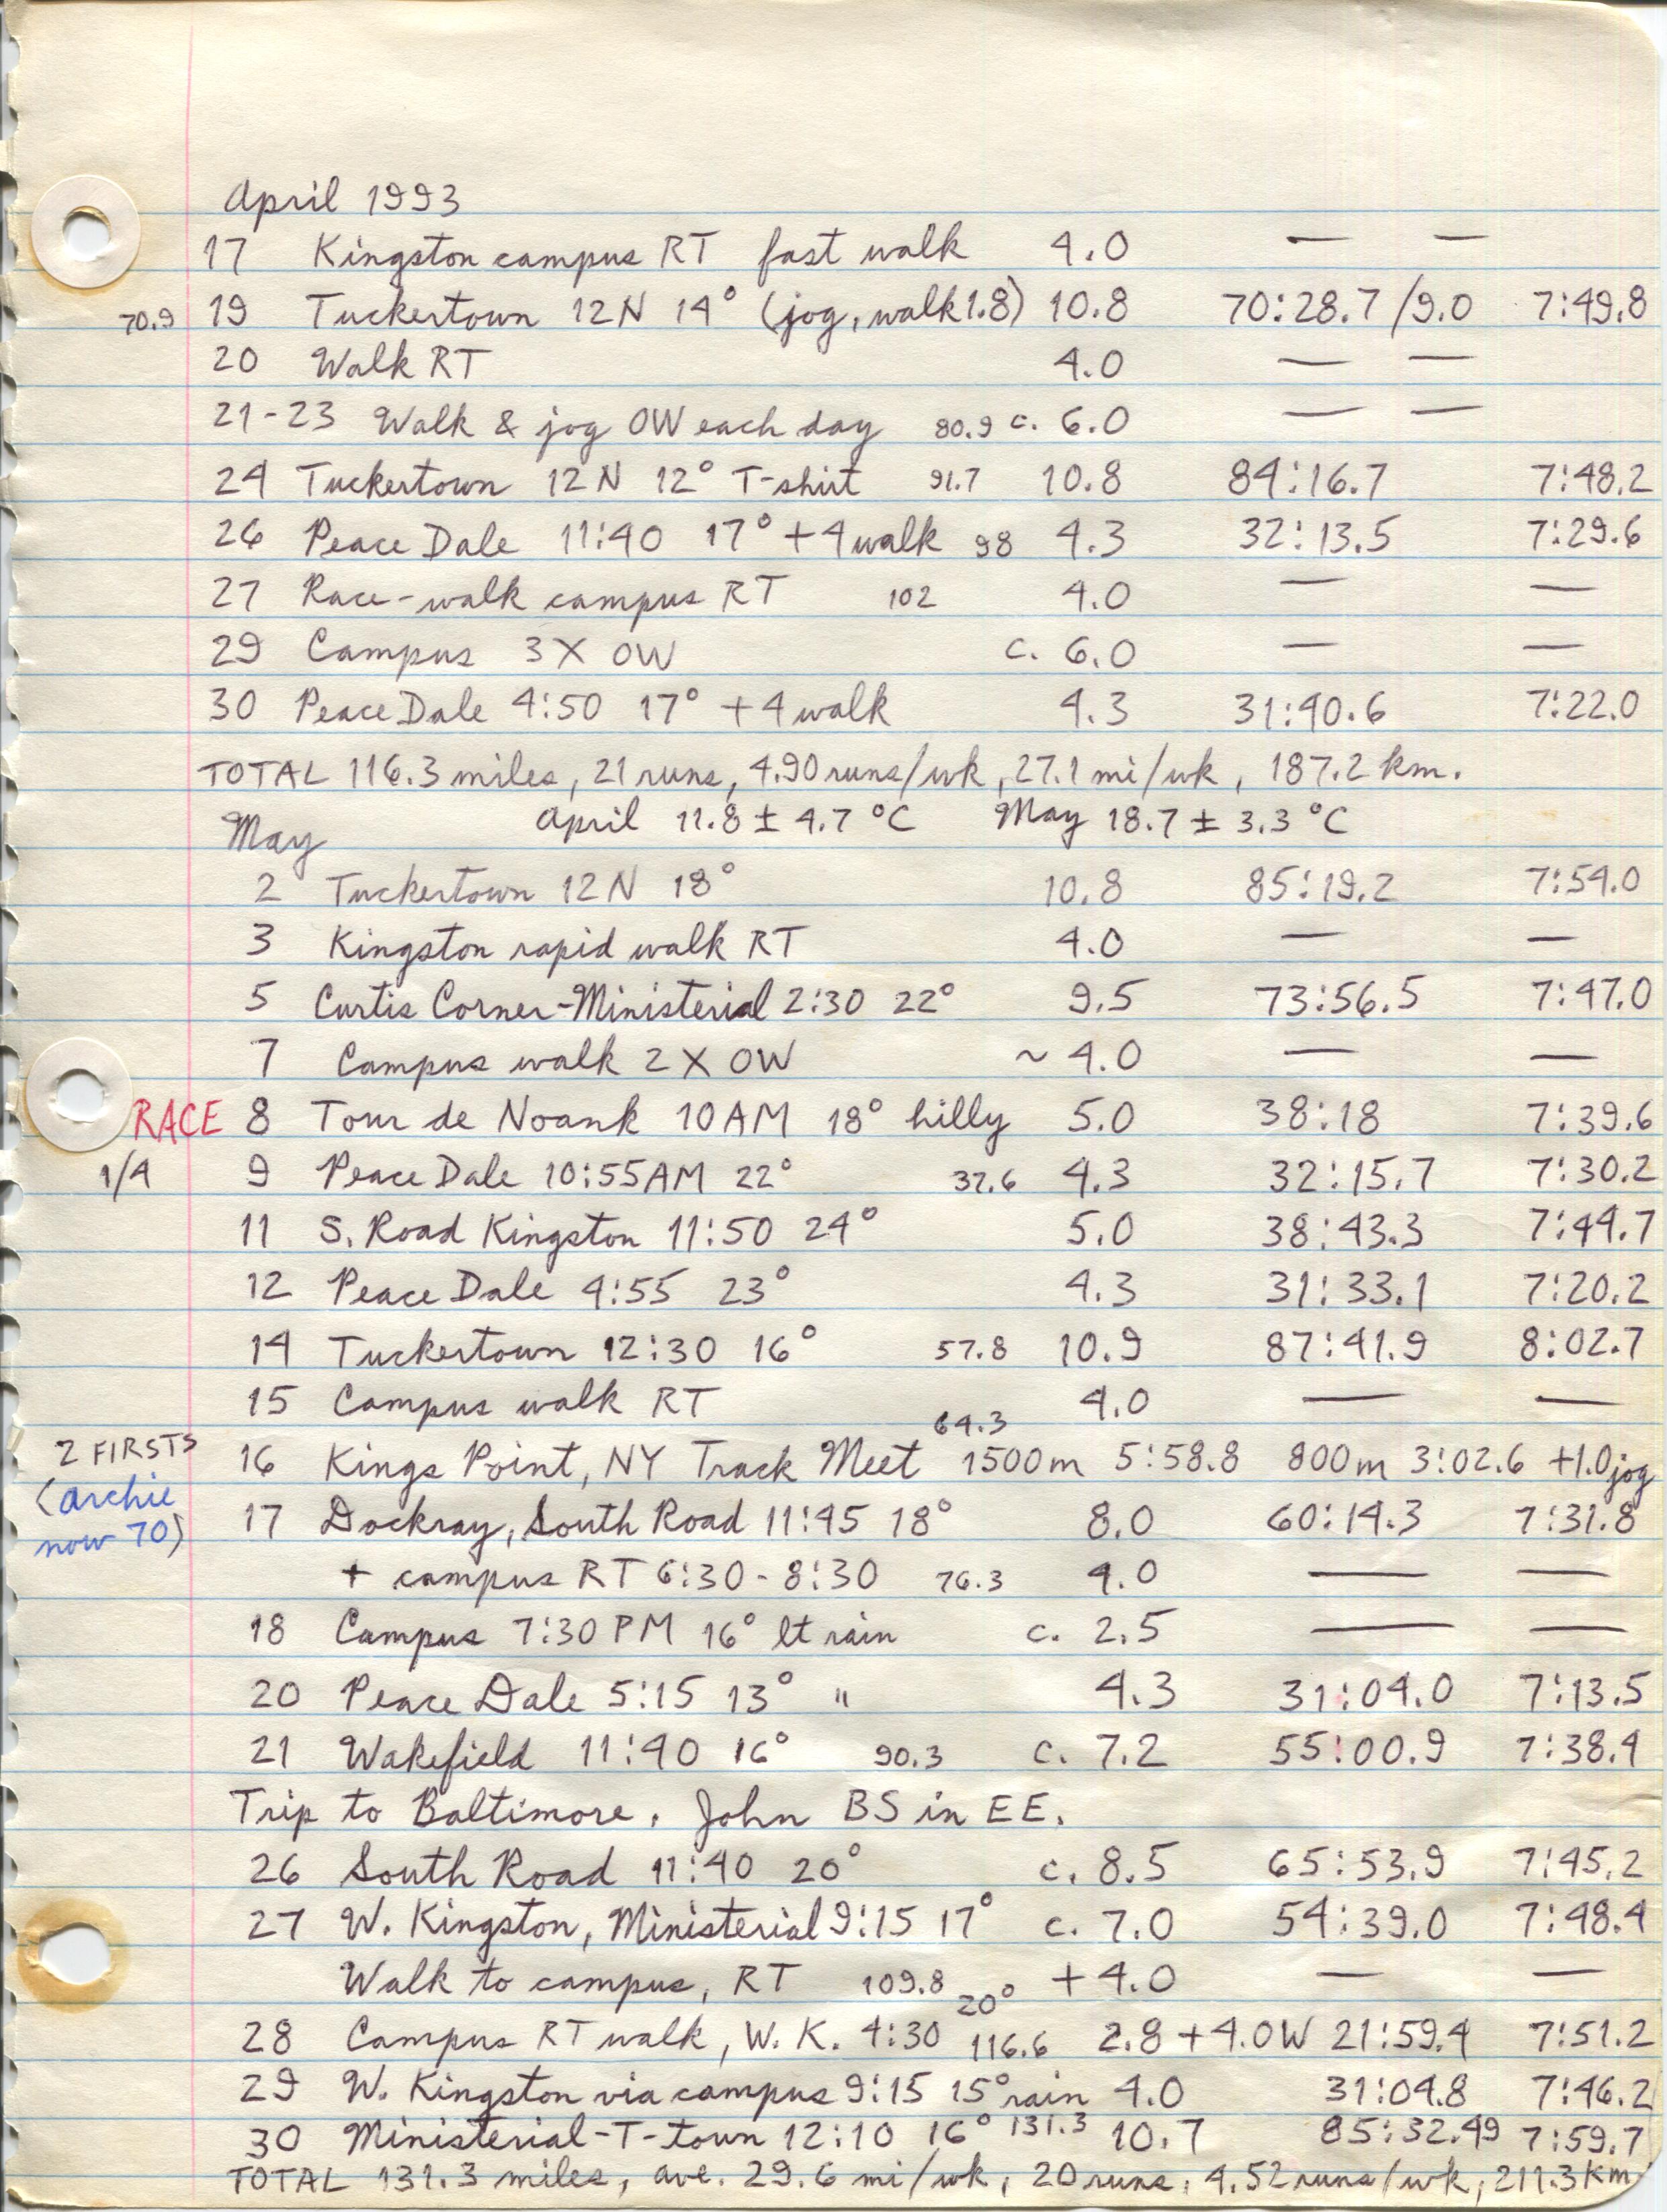 April 1993
17 Kingston campus RT fast walk 4.0 — —
70.9 19 Tuckertown 12N 14° (jog, walk 1.8) 10.8 70:28.7/9.0 7:49.8
20 Walk RT 4.0 — —
21-23 Walk & jog OW each day 80.9 c. 6.0 — —
24 Tuckertown 12N 12° T-shirt 91.7 10.8 84:16.7 7:48.2
26 Peace Dale 11:40 17° + 4 walk 98 4.3 32:13.5 7:29.6
27 Race-walk campus RT 102 4.0 — —
29 Campus 3X OW c. 6.0 — —
30 Peace Dale 4:50 17° + 4 walk 4.3 31:40.6 7:22.0
TOTAL 116.3 miles, 21 runs, 4.90 runs/wk, 27.1 mi/wk, 187.2 km.
April 11.8 ± 4.7 °C May 18.7 ± 3.3 °C
May
2 Tuckertown 12N 18° 10.8 85:19.2 7:54.0
3 Kingston rapid walk RT 4.0 — —
5 Curtis Corner-Ministerial 2:30 22° 9.5 73:56.5 7:47.0
7 Campus walk 2X OW ~ 4.0 — —
RACE 8 Tour de Noank 10AM 18° hilly 5.0 38:18 7:39.6
1/4 9 Peace Dale 10:55AM 22° 37.6 4.3 32:15.7 7:30.2
11 S. Road Kingston 11:50 24° 5.0 38:43.3 7:44.7
12 Peace Dale 4:55 23° 4.3 31:33.1 7:20.2
14 Tuckertown 12:30 16° 57.8 10.9 87:41.9 8:02.7
15 Campus walk RT 4.0 — —
64.3
2 FIRSTS 16 Kings Point, NY Track Meet 1500m 5:58.8 800m 3:02.6 +1.0 jog
(Archie
17 Dockray, South Road 11:45 18° 8.0 60:14.3 7:31.8
now 70)
+ campus RT 6:30-8:30 76.3 4.0 — —
18 Campus 7:30 PM 16° lt rain c. 2.5 — —
20 Peace Dale 5:15 13° " 4.3 31:04.0 7:13.5
21 Wakefield 11:40 16° 90.3 c. 7.2 55:00.9 7:38.4
Trip to Baltimore. John BS in EE.
26 South Road 11:40 20° c. 8.5 65:53.9 7:45.2
27 W. Kingston, Ministerial 9:15 17° c. 7.0 54:39.0 7:48.4
Walk to campus, RT 109.8 + 4.0 — —
20°
28 Campus RT walk, W. K. 4:30 116.6 2.8 + 4.0W 21:59.4 7:51.2
29 W. Kingston via campus 9:15 15° rain 4.0 31:04.8 7:46.2
30 Ministerial-T-town 12:10 16° 131.3 10.7 85:32.49 7:59.7
TOTAL 131.3 miles, ave. 29.6 mi/wk, 20 runs, 4.52 runs/wk, 211.3 km